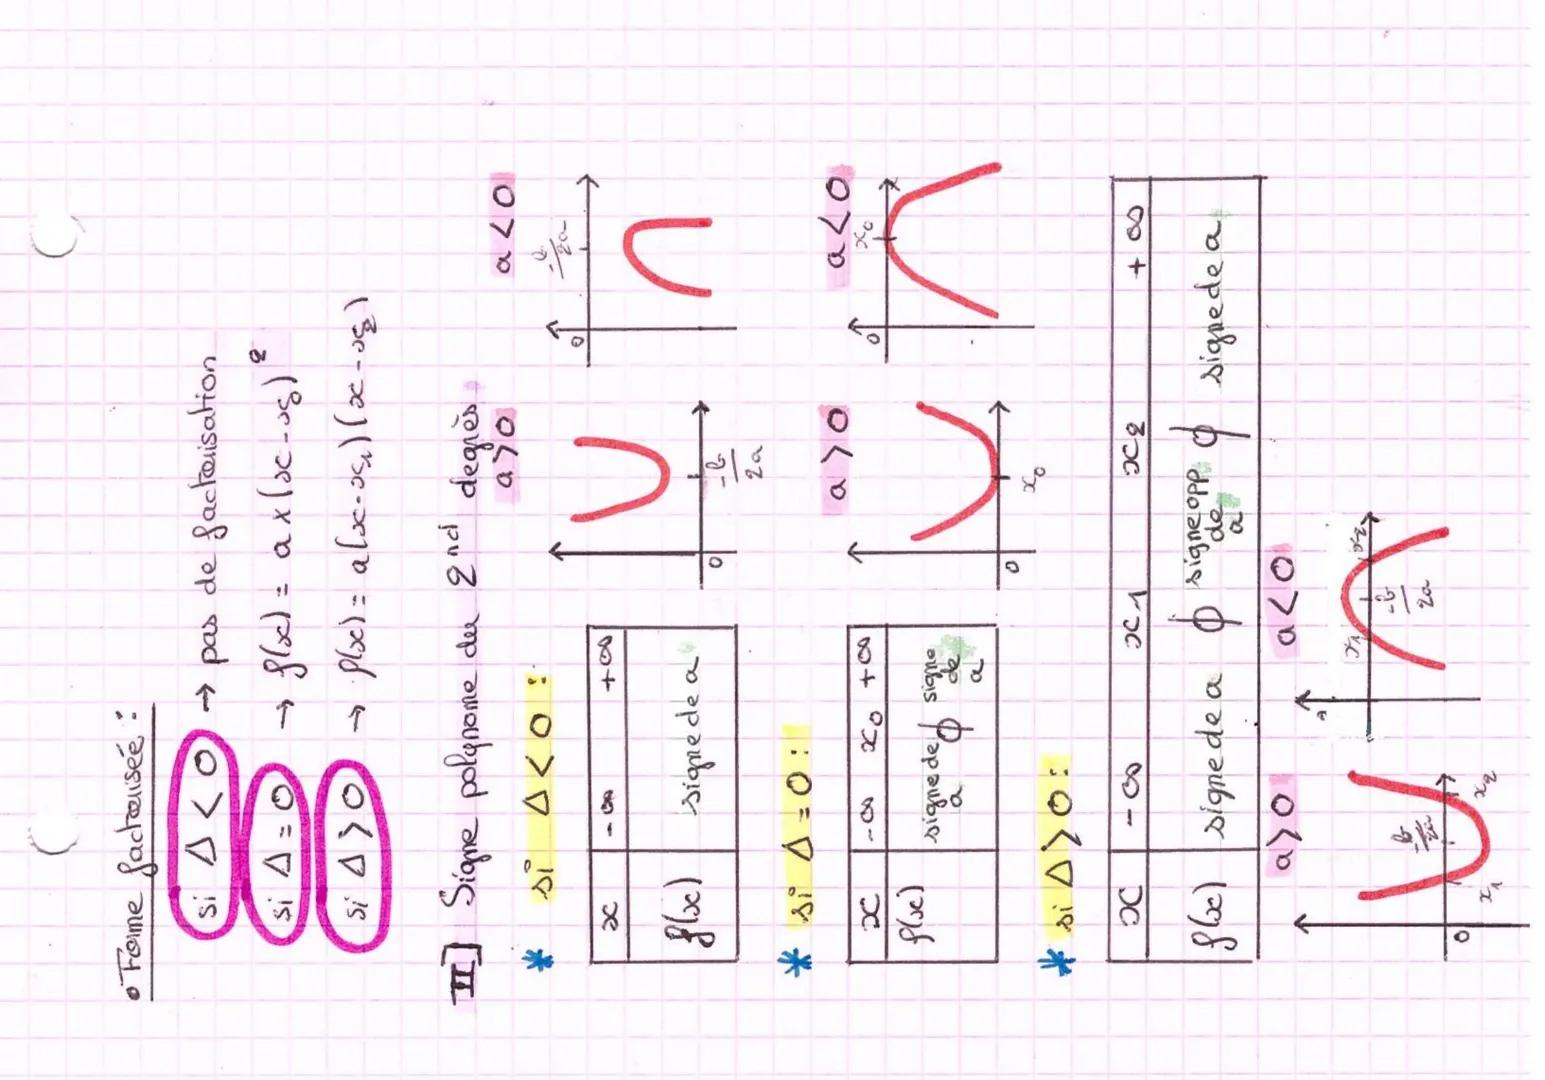 • Forme factorisée :
si Δ < 0 → pas de factorisation
si Δ = 0 → f(x) = a x (x - x₀)²
si Δ > 0 → f(x) = a(x - x₁)(x - x₂)
II] Signe polynome du 2nd degrès
* si Δ < 0 :
a > 0
a < 0
x -∞ +∞
f(x) signe de a
0 -b/2a
0 -b/2a
* si Δ = 0 :
a > 0
a < 0
x -∞ x₀ +∞
f(x) signe de a ϕ signe de a
0 x₀
0 x₀
* si Δ > 0 :
x -∞ x₁ x₂ +∞
f(x) signe de a ϕ signe opp de a ϕ signe de a
a > 0
a < 0
0 x₁ -b/2a x₂
x₁ -b/2a x₂